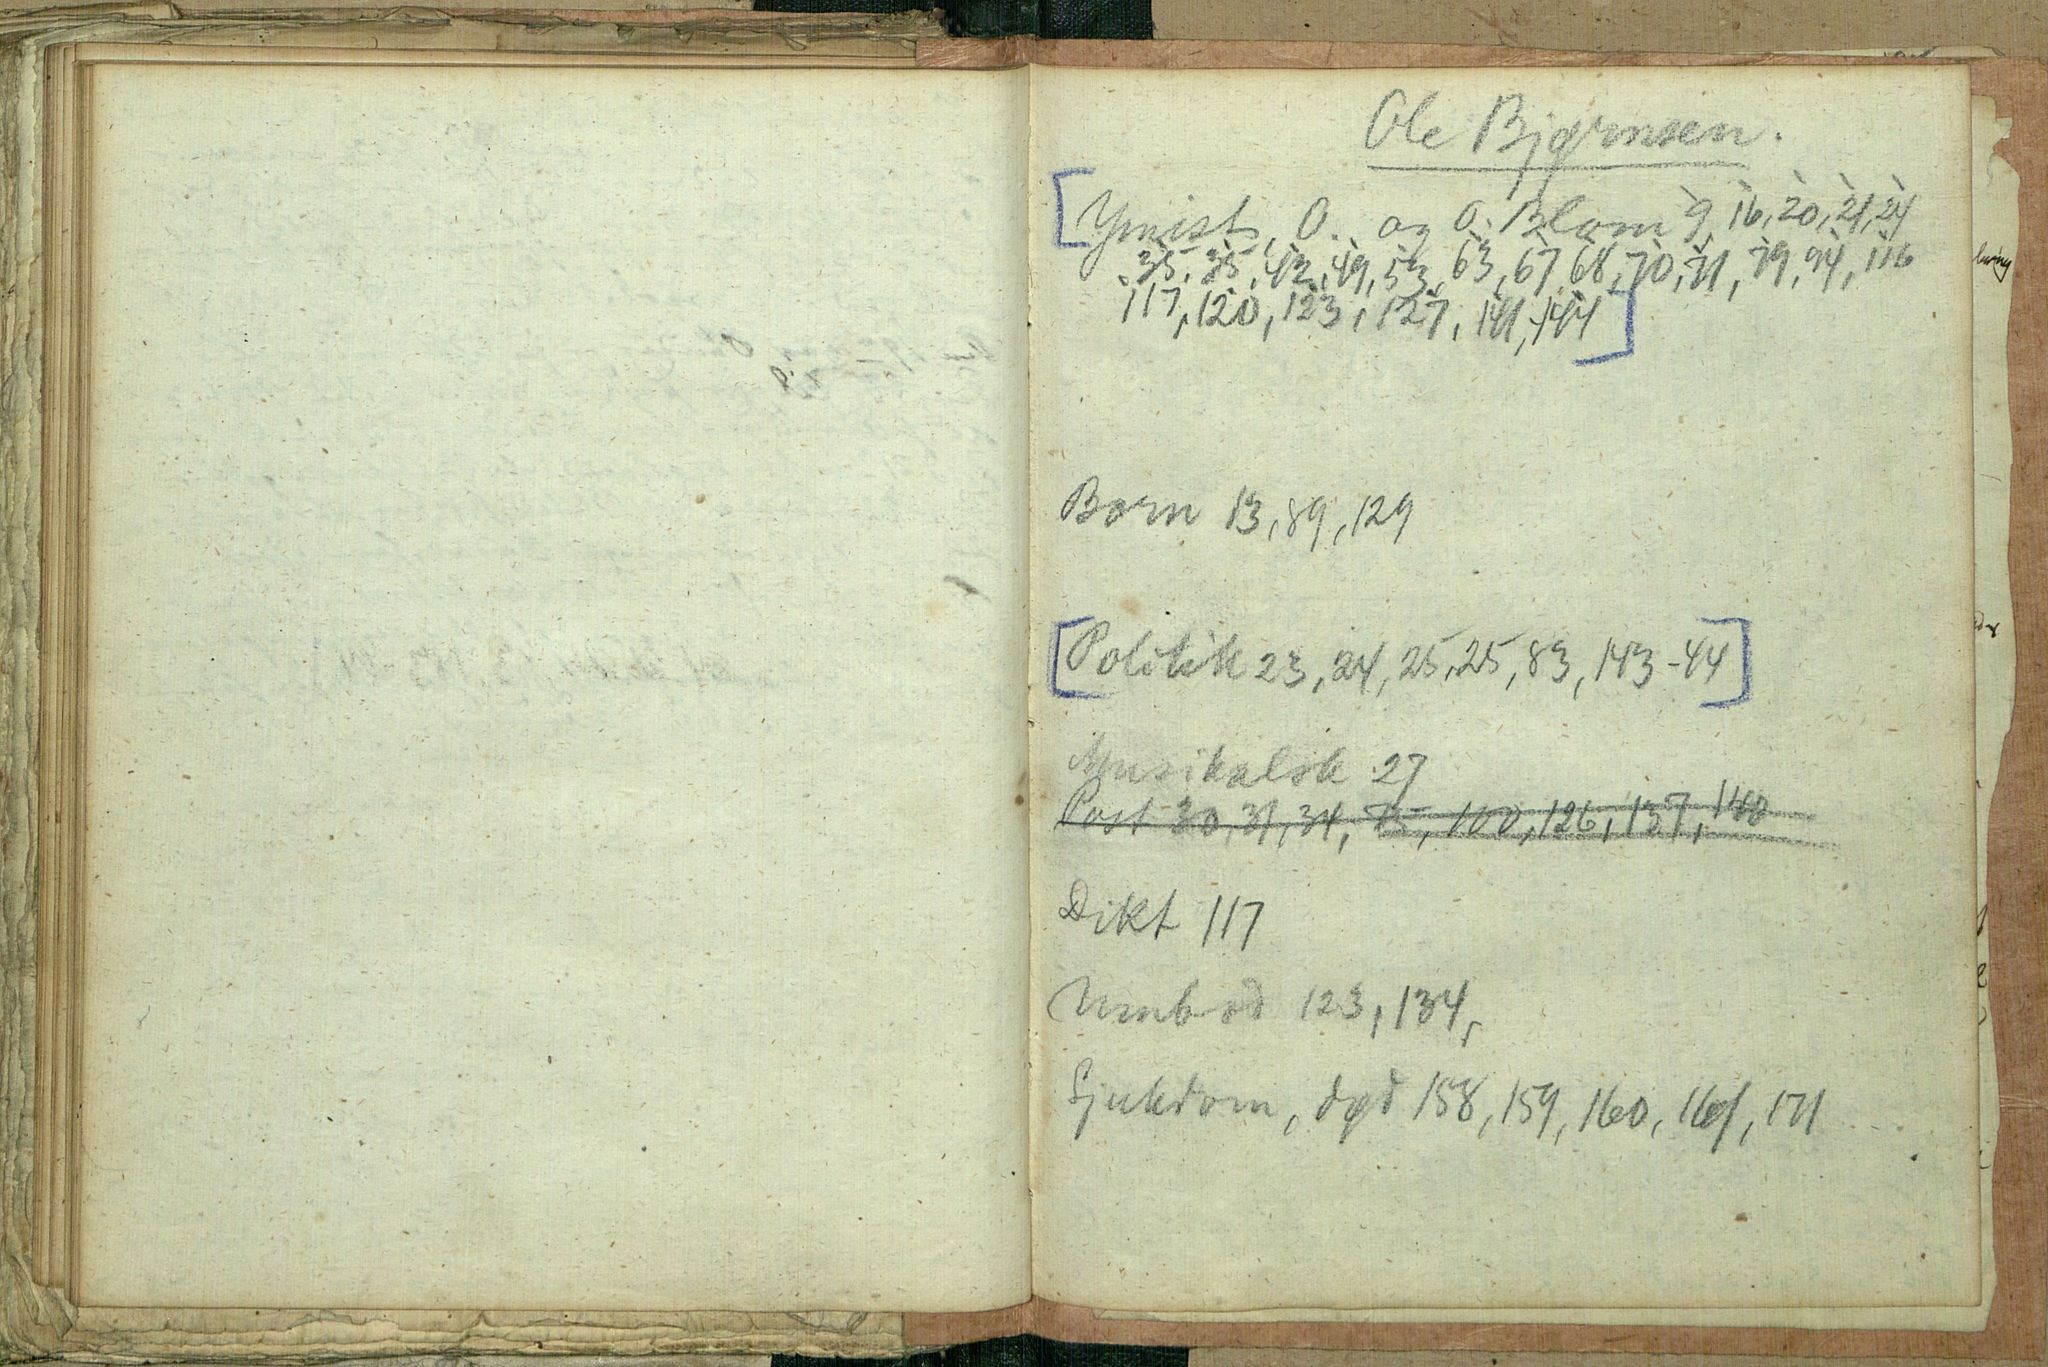 Ole Bjørnsen.
[Ymist, O. og O. Blom 9, 16, 20, 21, 24
35, 35, 42, 49, 53, 63, 67, 68, 70, 71, 79, 94, 116
117, 120, 123, 127, 141, 144]
Born 13, 89, 129
[Politik 23, 24, 25, 25, 83, 143-44]
Musikalsk 27
Post 30, 31, 34, 75, 100, 126, 137, 140
Dikt 117
Umbod 123, 134,
Sjukdom, død 158, 159, 160, 161, 171